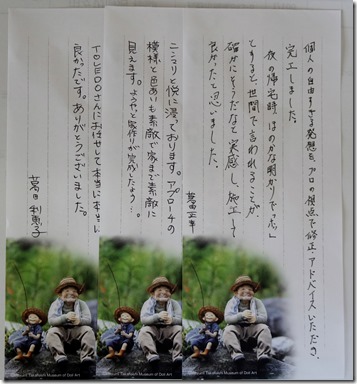 個人の自由すぎる発想を、プロの視点で修正・アドバイスいただき、
完工しました。
夜の帰宅時、ほのかな明かりで「ホッ」
とすると世間で言われることが
確かにそうだなと実感し、施工して
良かったと思いました。
葛田 正幸
ニンマリと悦に浸っております。アプローチの
模様と色あいも素敵で家まで素敵に
見えます。ようやく家作りが完成したよう…。
TOLEDOさんにおまかせして本当に本当に
良かったです。ありがとうございました。
葛田 利恵子
Museum of Doll Art